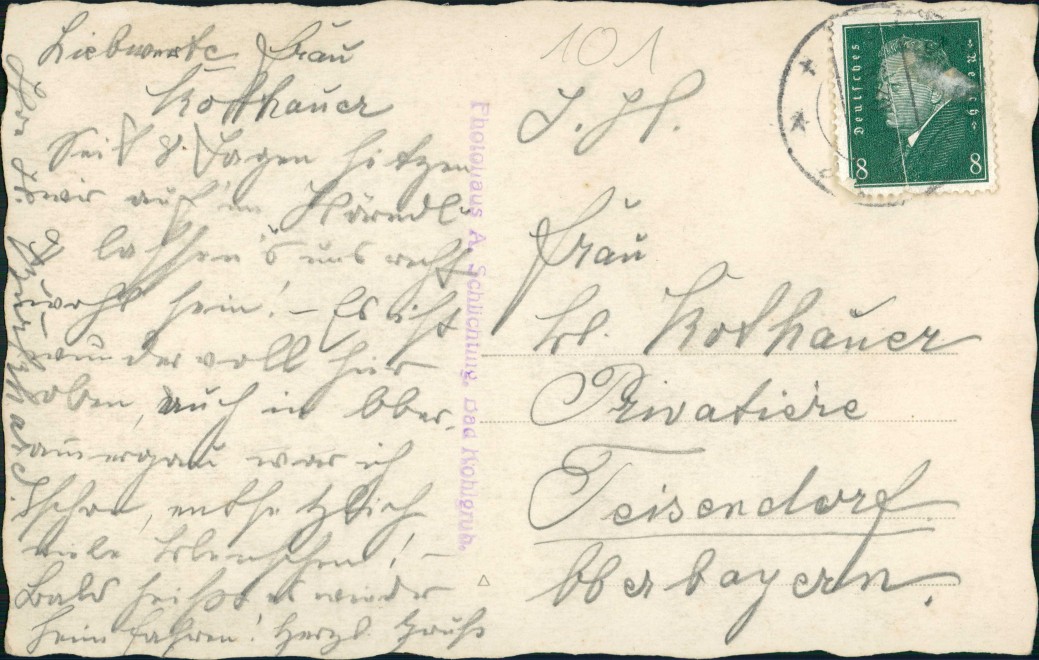 Liebwerte Frau
Rothauer
Seit 8 Tagen sitzen
wir auf'm Hörndl
lassen's uns recht
wohl sein! - Es ist
wundervoll hier
oben, auch in Ober-
amergau war ich
schon, entsetzlich
viele Menschen! -
Bald heißt es wieder
heim fahren! Herzl. Gruß
Ihre
Photohaus A. Schlichtung, Bad Kohlgrub.
101
Frau
Rothauer
Privatiere
Teisendorf
Oberbayern.
Deutsches Reich
8 8